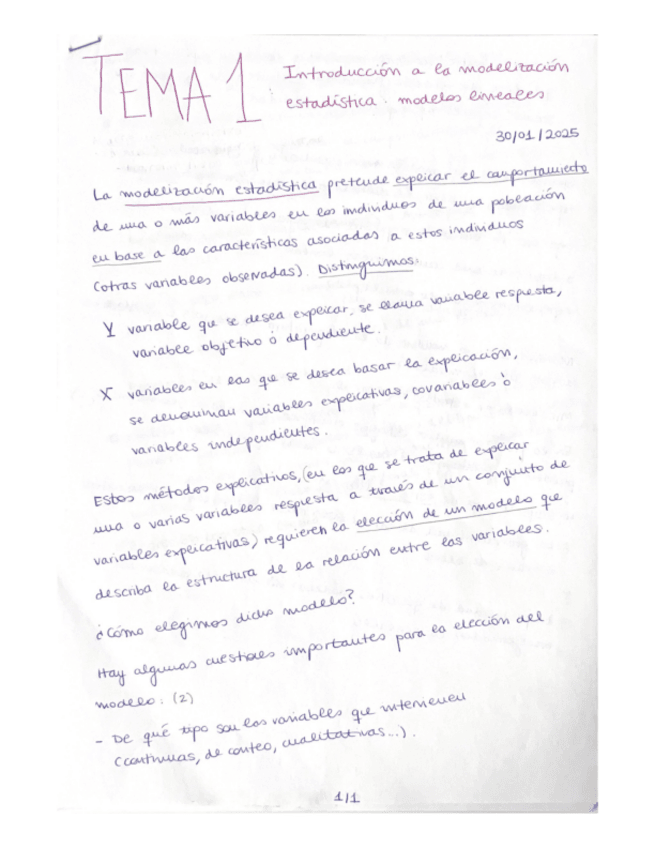 TEMA 1: Introducción a la modelización
estadística. modelos lineales
30/01/2025
La modelización estadística pretende explicar el comportamiento
de una o más variables en los individuos de una población
en base a las características asociadas a estos individuos
(otras variables observadas). Distinguimos:
Y variable que se desea explicar, se llama variable respuesta,
variable objetivo ó dependiente.
X variables en las que se desea basar la explicación,
se denominan variables explicativas, covariables ó
variables independientes.
Estos métodos explicativos, (en los que se trata de explicar
una o varias variables respuesta a través de un conjunto de
variables explicativas) requieren la elección de un modelo que
describa la estructura de la relación entre las variables.
¿Cómo elegimos dicho modelo?
Hay algunas cuestiones importantes para la elección del
modelo: (2)
- De qué tipo son las variables que intervienen
(continuas, de conteo, cualitativas...).
1/1